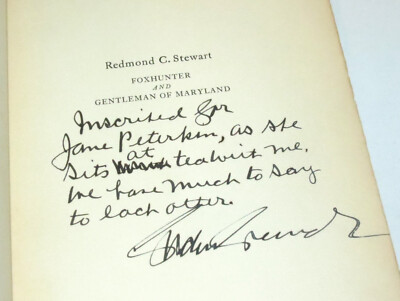 Redmond C. Stewart
FOXHUNTER
AND
GENTLEMAN OF MARYLAND
Inscribed for
Jane Peterkin, as she
sits at tea with me.
We have much to say
to each other.